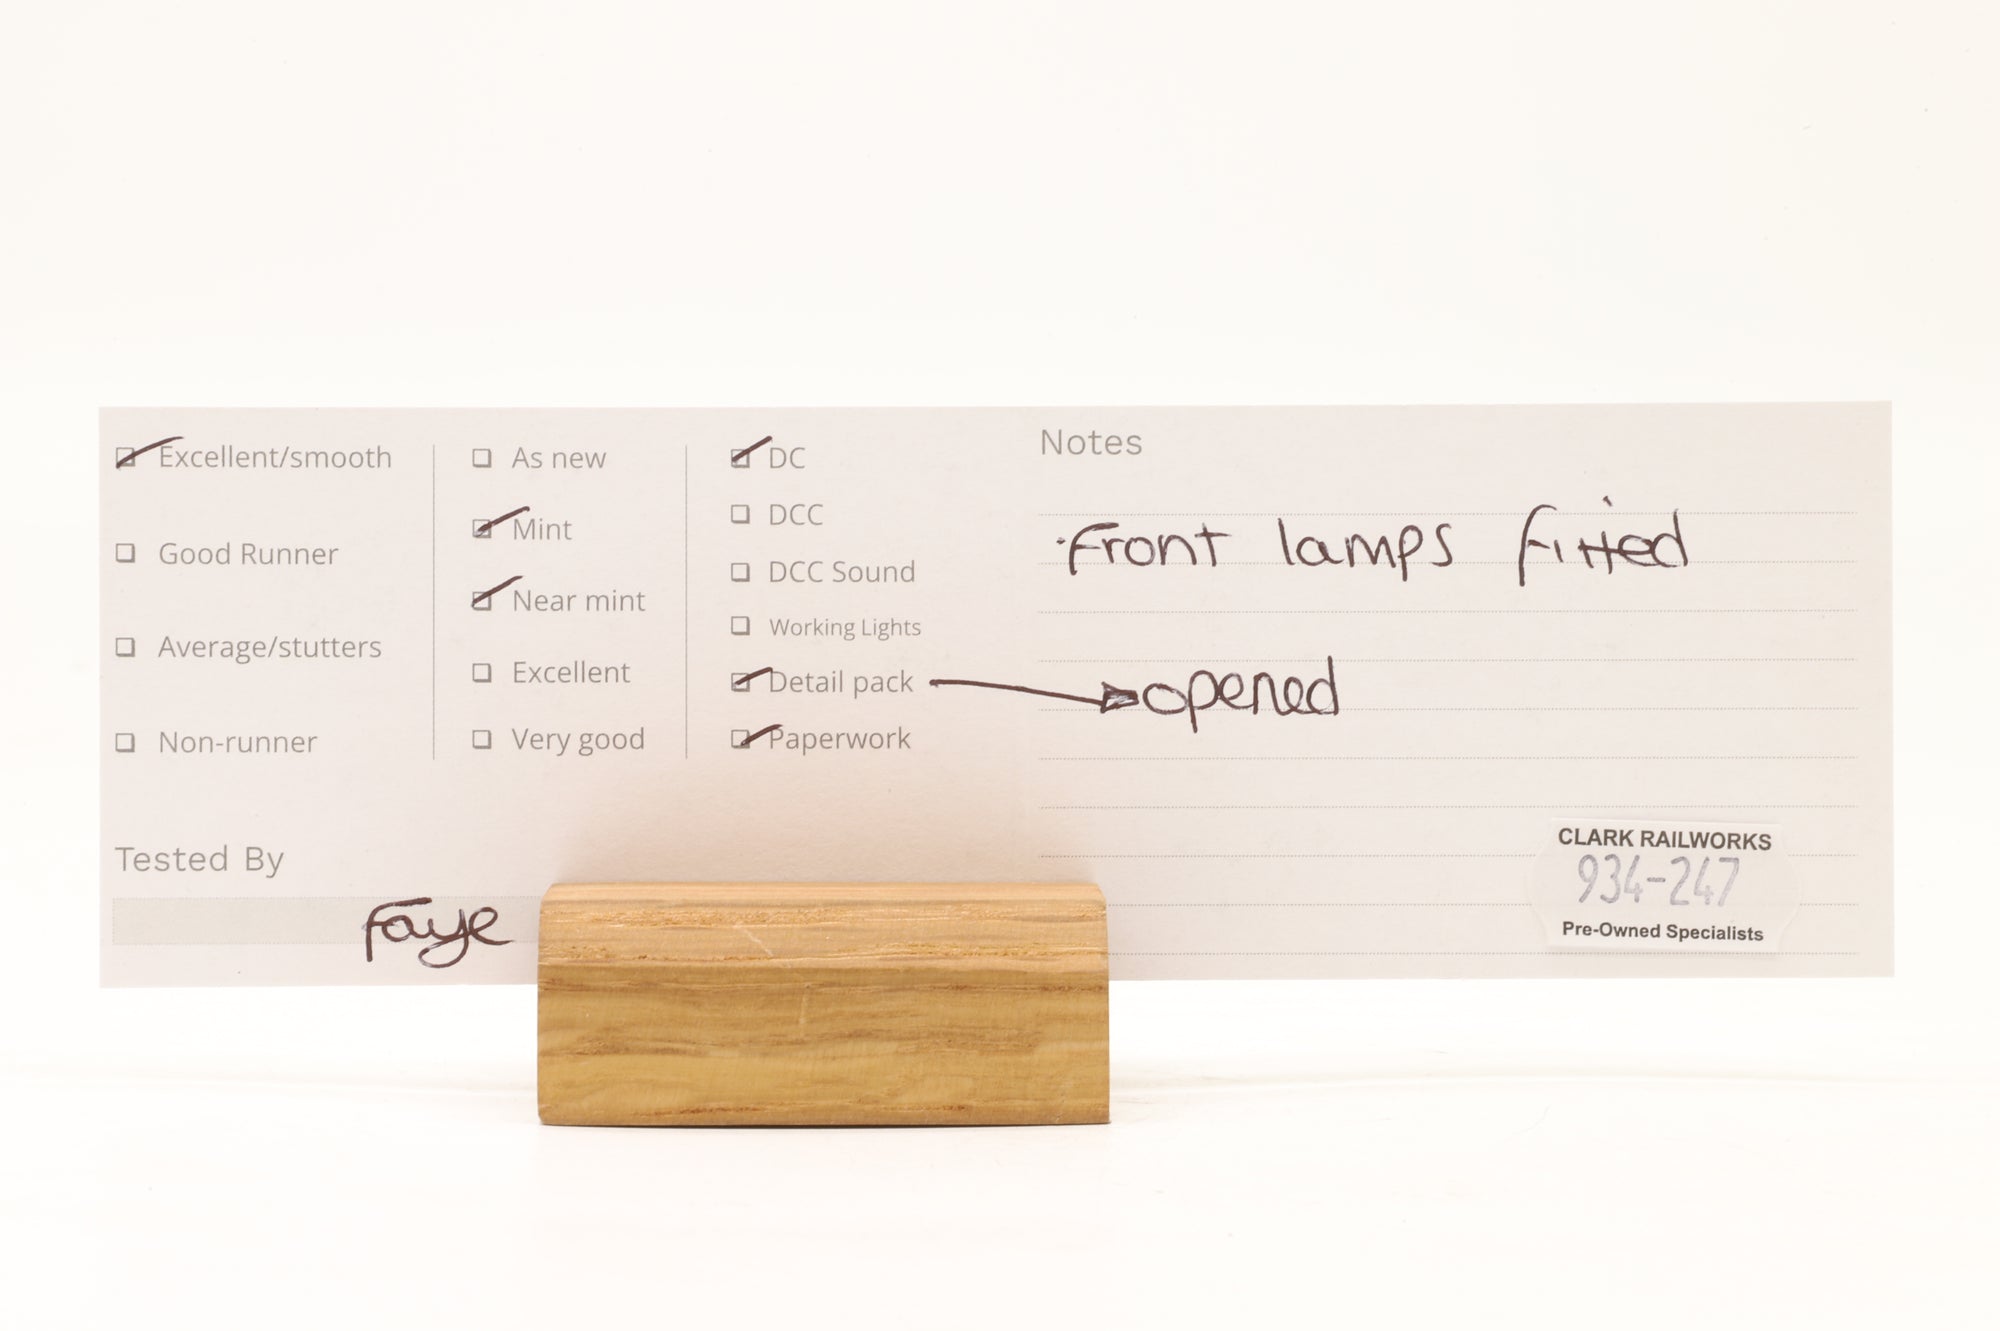 Excellent/smooth
Good Runner
Average/stutters
Non-runner
As new
Mint
Near mint
Excellent
Very good
DC
DCC
DCC Sound
Working Lights
Detail pack
Paperwork
Notes
·Front lamps fitted
opened
Tested By
Faye
CLARK RAILWORKS
934-247
Pre-Owned Specialists